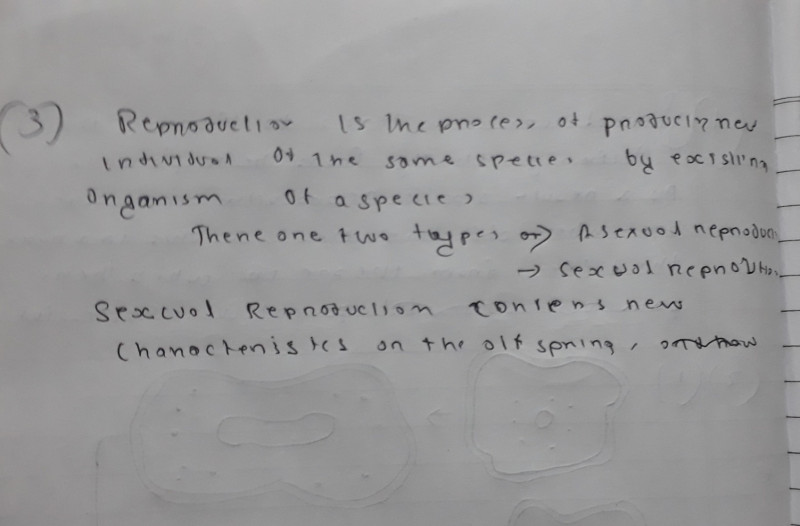 (3) Reproduction is the process of producing new
individual of the same species by existing
organism of a species
There are two types → Asexual reproduc
→ sexual reproduction
Sexual Reproduction confers new
characteristics on the offspring,